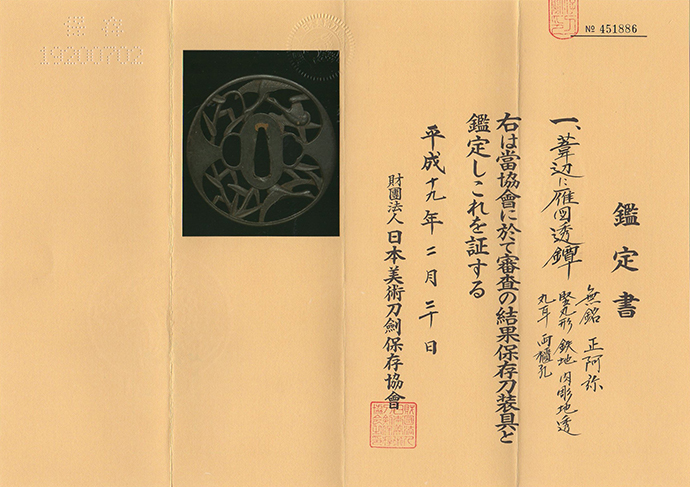 № 451886
鑑定書
一、葦辺に雁図透鐔
無銘 正阿弥
竪丸形 鉄地 肉彫地透
丸耳 両櫃孔
右は當協會に於て審査の結果保存刀装具と
鑑定しこれを証する
平成十九年二月二十日
財團法人 日本美術刀劍保存協會
保存
19200702